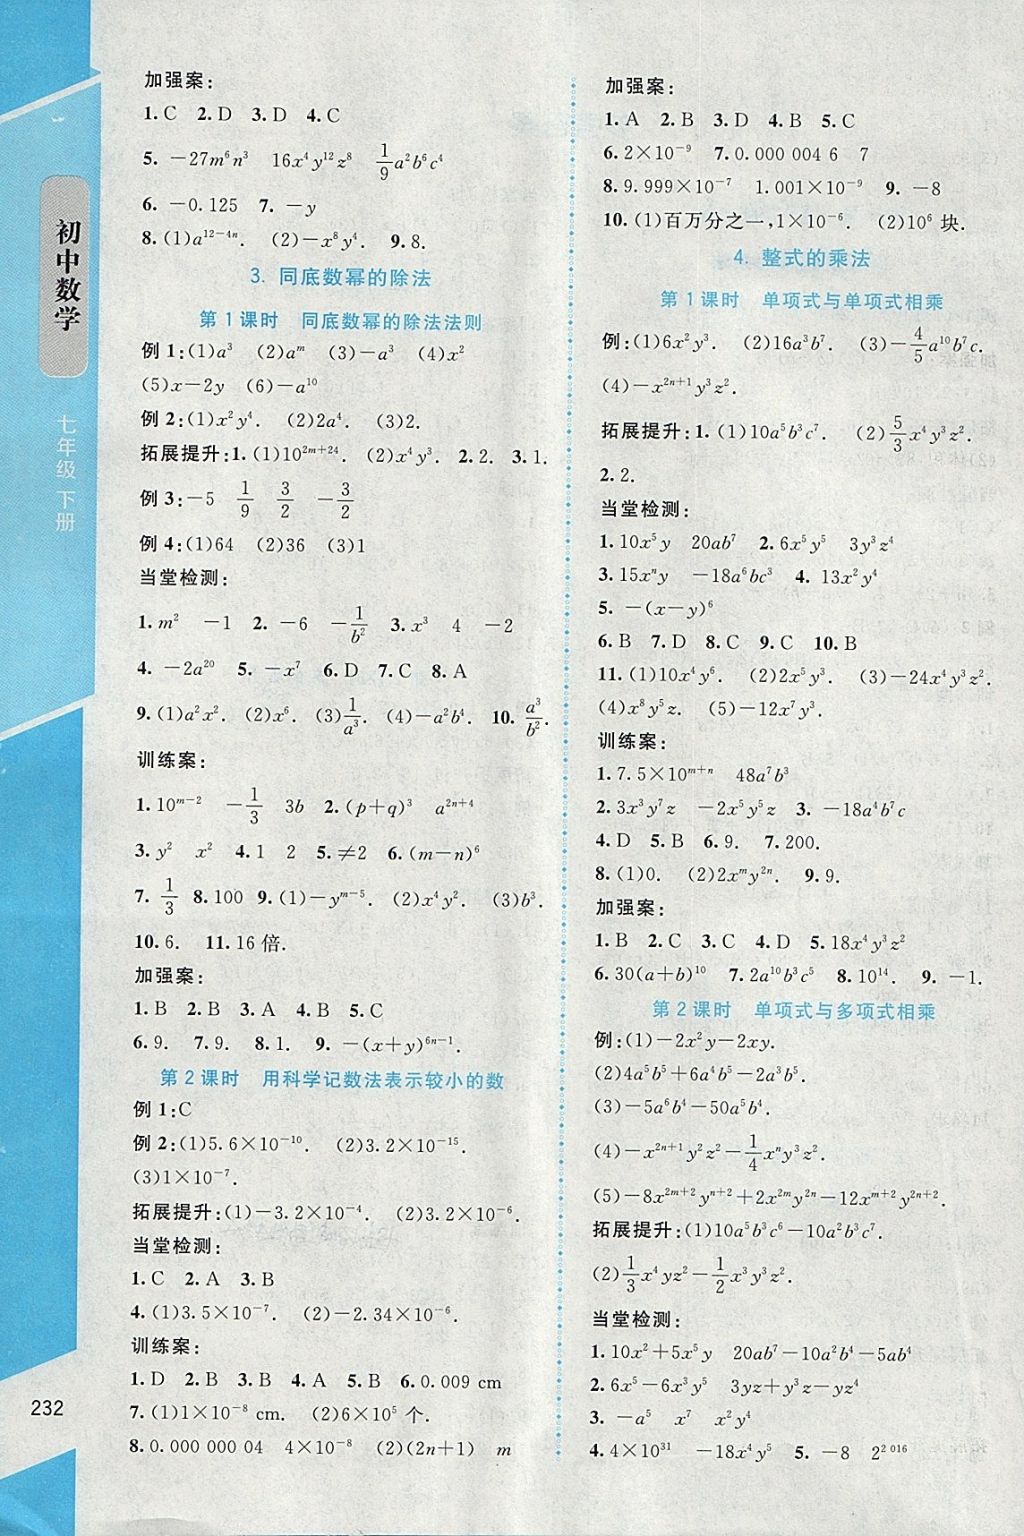 初中数学
七年级 下册
232
加强案:
1.C 2.D 3.D 4.C
5. −27m⁶n³ 16x⁴y¹²z⁸ 1/9a²b⁶c⁴
6. −0.125 7. −y
8.(1)a¹²⁻⁴ⁿ. (2)−x⁸y⁴. 9.8.
3. 同底数幂的除法
第1课时 同底数幂的除法法则
例1:(1)a³ (2)aᵐ (3)−a³ (4)x²
(5)x−2y (6)−a¹⁰
例2:(1)x²y⁴. (2)2a⁴. (3)2.
拓展提升:1.(1)10²ᵐ⁺²⁴. (2)x⁴y³. 2.2. 3.1.
例3:−5 1/9 3/2 −3/2
例4:(1)64 (2)36 (3)1
当堂检测:
1.m² −1 2.−6 −1/b² 3.x³ 4 −2
4. −2a²⁰ 5. −x⁷ 6.D 7.C 8.A
9.(1)a²x². (2)x⁶. (3)1/a³. (4)−a²b⁴. 10.a³/b².
训练案:
1.10ᵐ⁻² −1/3 3b 2.(p+q)³ a²ⁿ⁺⁴
3.y² x² 4.1 2 5.≠2 6.(m−n)⁶
7. 1/3 8.100 9.(1)−yᵐ⁻⁵. (2)x⁴y². (3)b³.
10.6. 11.16倍.
加强案:
1.B 2.B 3.A 4.B 5.C
6.9. 7.9. 8.1. 9. −(x+y)⁶ⁿ⁻¹.
第2课时 用科学记数法表示较小的数
例1:C
例2:(1)5.6×10⁻¹⁰. (2)3.2×10⁻¹⁵.
(3)1×10⁻⁷.
拓展提升:(1)−3.2×10⁻⁴. (2)3.2×10⁻⁶.
当堂检测:
1.C 2.A 3.B
4.(1)3.5×10⁻⁷. (2)−2.34×10⁻⁶.
训练案:
1.D 2.B 3.B 4.A 5.B 6.0.009 cm
7.(1)1×10⁻⁸ cm. (2)6×10⁵个.
8.0.000 000 04 4×10⁻⁸ (2)(2n+1) m
加强案:
1.A 2.B 3.D 4.B 5.C
6.2×10⁻⁹ 7.0.000 004 6 7
8.9.999×10⁻⁷ 1.001×10⁻⁹ 9. −8
10.(1)百万分之一,1×10⁻⁶. (2)10⁶块.
4. 整式的乘法
第1课时 单项式与单项式相乘
例:(1)6x²y³. (2)16a³b⁷. (3)−4/5a¹⁰b⁷c.
(4)−x²ⁿ⁺¹y³z².
拓展提升:1.(1)10a⁵b³c⁷. (2)5/3x⁴y³z².
2.2.
当堂检测:
1.10x⁵y 20ab⁷ 2.6x⁵y⁵ 3y³z⁴
3.15xⁿy −18a⁶bc³ 4. 13x²y⁴
5. −(x−y)⁶
6.B 7.D 8.C 9.C 10.B
11.(1)10x⁴y⁶. (2)2x⁵y³. (3)−24x⁴y³z².
(4)x⁸y⁵z. (5)−12x⁷y³.
训练案:
1.7.5×10ᵐ⁺ⁿ 48a⁷b³
2.3x³y⁷z −2x⁵y⁵z 3. −18a⁴b⁷c
4.D 5.B 6.9. 7.200.
8.(1)0. (2)2xᵐy²ⁿ. 9.9.
加强案:
1.B 2.C 3.C 4.D 5.18x⁴y³z²
6.30(a+b)¹⁰ 7.2a¹⁰b³c⁵ 8.10¹⁴. 9. −1.
第2课时 单项式与多项式相乘
例:(1)−2x²y−2xy.
(2)4a⁵b⁵+6a⁴b⁶−2a³b⁵.
(3)−5a⁶b⁴−50a⁵b⁴.
(4)−x²ⁿ⁺¹y²z²−1/4xⁿy³z².
(5)−8x²ᵐ⁺²yⁿ⁺²+2x²ᵐy²ⁿ−12xᵐ⁺²y²ⁿ⁺².
拓展提升:(1)10a⁵b³c⁶−10a²b²c⁷.
(2)1/3x⁴yz²−1/2x³y³z².
当堂检测:
1.10x²+5x⁵y 20ab⁷−10ab⁵−5ab⁴
2.6x⁵−6x³y⁵ 3yz+y³z³−yz⁴
3. −a⁵ x⁷ x²y⁴
4.4×10³¹ −18x⁴y⁵ 5. −8 2² ⁰¹⁶